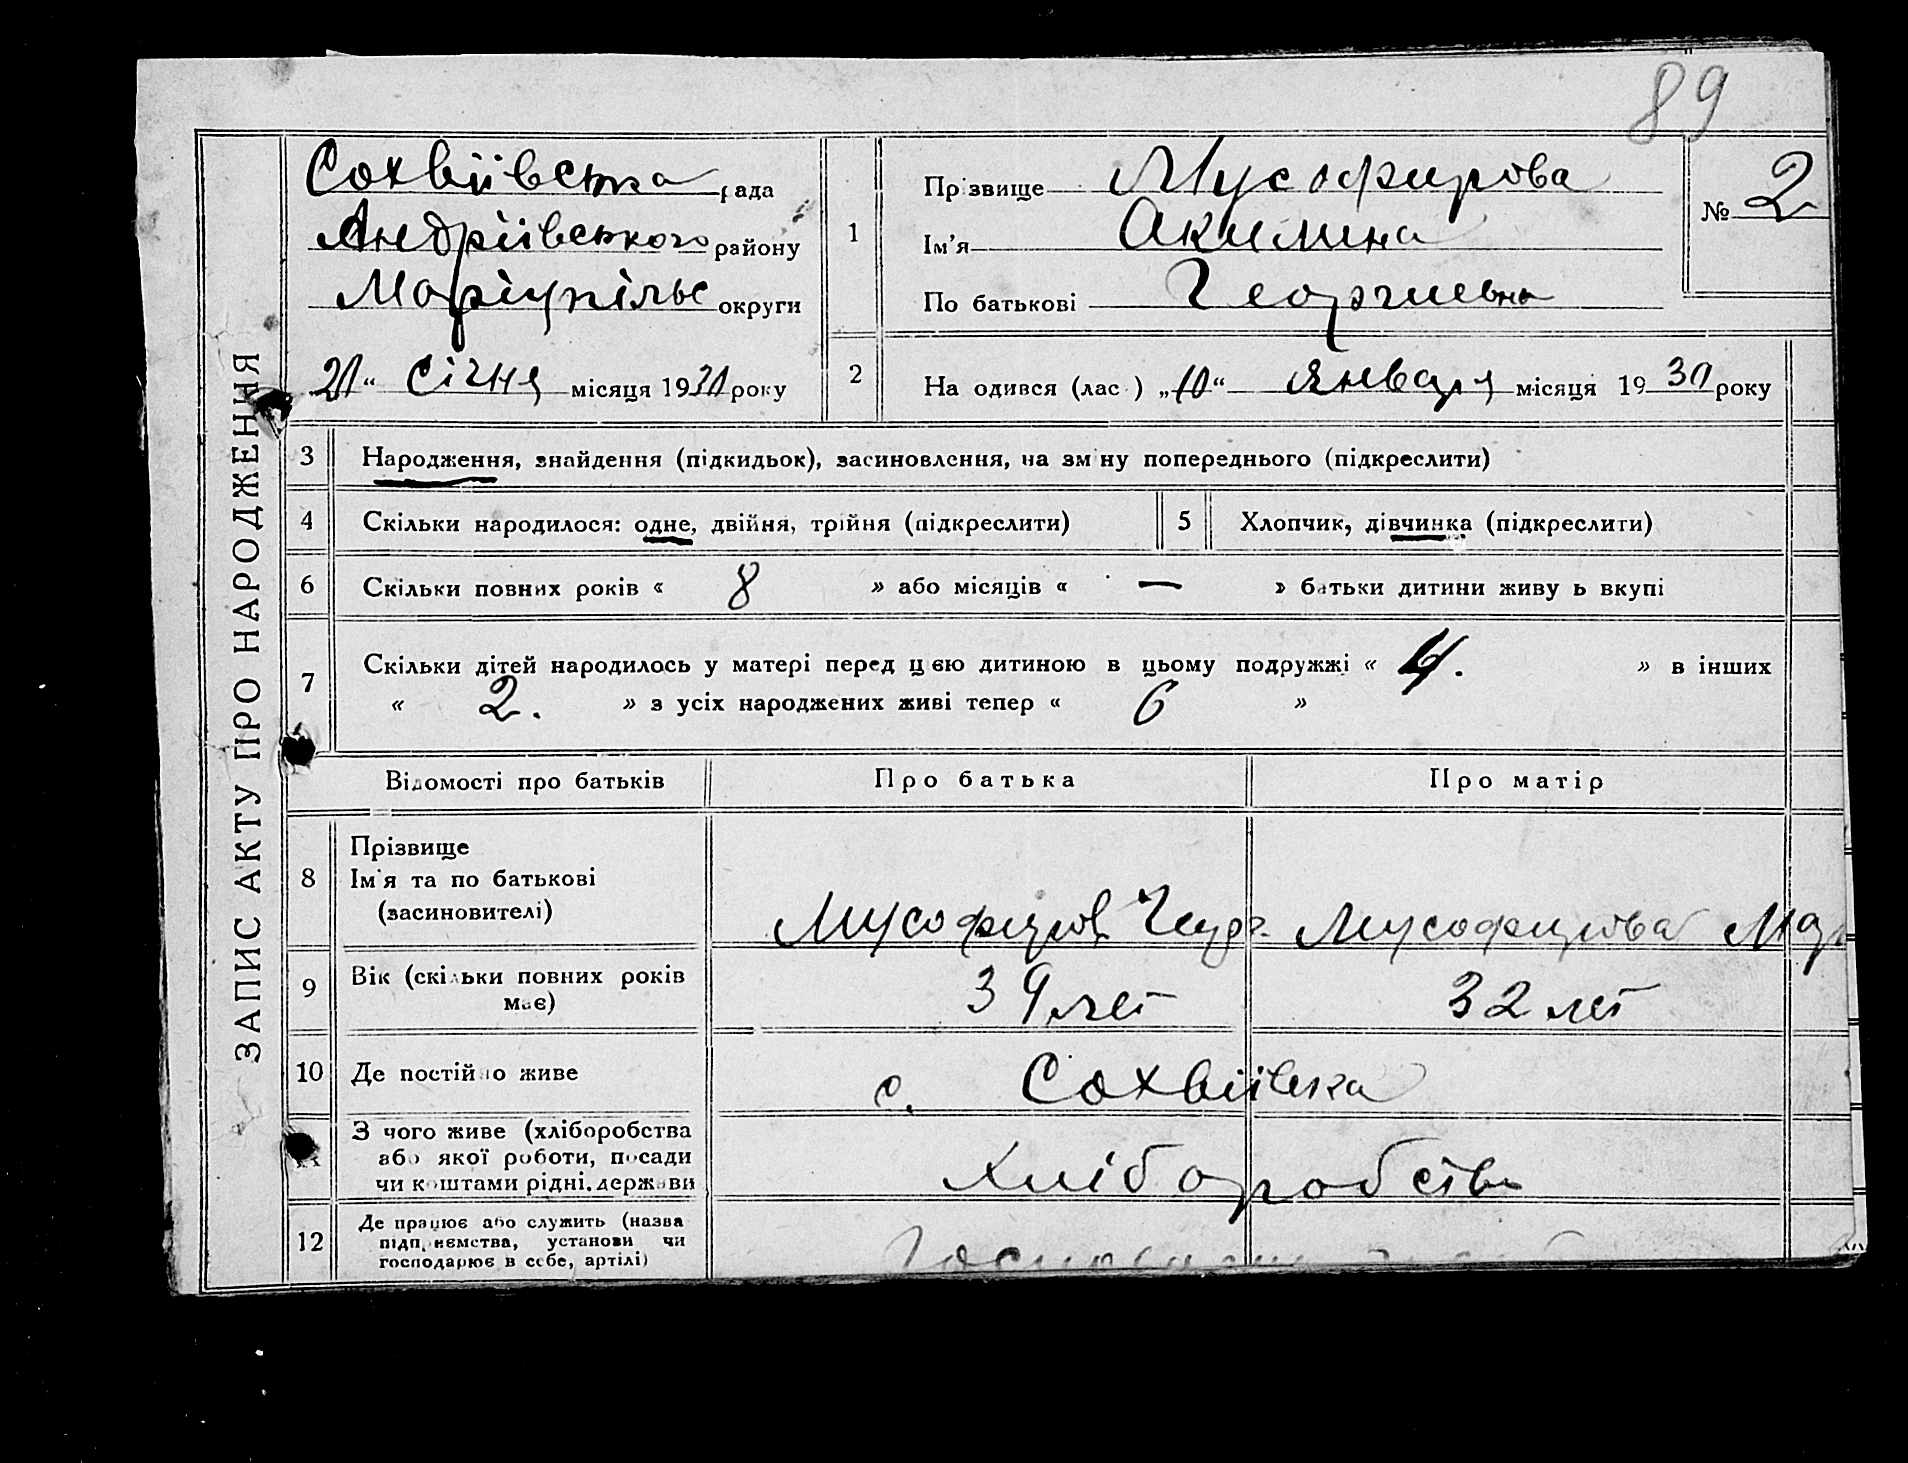 89
ЗАПИС АКТУ ПРО НАРОДЖЕННЯ
Сохвіївська рада
Андріївського району
Маріупільс округи
21" січня місяця 1930 року
1
Прізвище Мусофирова
Ім'я Акилина
По батькові Георгиевна
№ 2
2
На одився (лас ) „10" Января місяця 1930 року
3 Народження, знайдення (підкидьок), засиновлення, на зміну попереднього (підкреслити)
4 Скільки народилося: одне, двійня, трійня (підкреслити)
5 Хлопчик, дівчинка (підкреслити)
6 Скільки повних років « 8 » або місяців « — » батьки дитини живу ь вкупі
7 Скільки дітей народилось у матері перед цією дитиною в цьому подружжі « 4. » в інших
« 2. » з усіх народжених живі тепер « 6 »
Відомості про батьків Про батька Про матір
8 Прізвище
Ім'я та по батькові
(засиновителі)
Мусофиров Мусофирова
9 Вік (скільки повних років
має)
39 лет 32 лет
10 Де постійно живе
с. Сохвіївка
З чого живе (хліборобства
або якої роботи, посади
чи коштами рідні, держави
хліборобств
12 Де працює або служить (назва
підприємства, установи чи
господарює в себе, артілі)